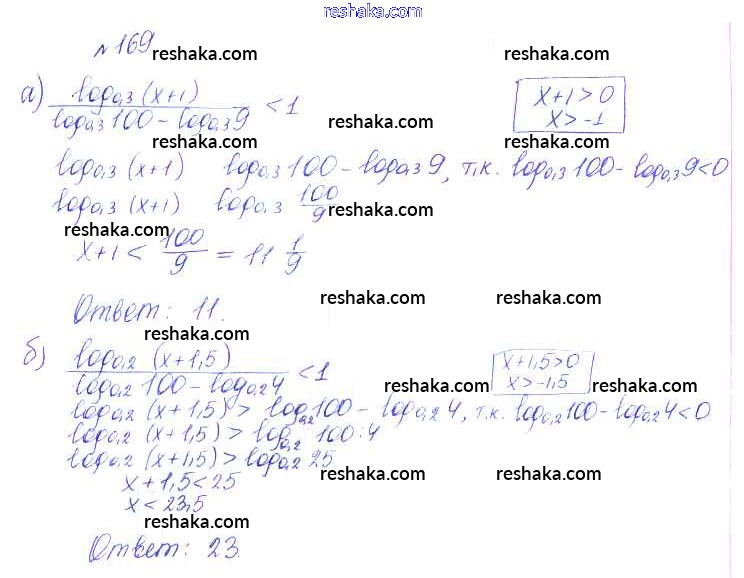 www.reshaka.com
№169
reshaka.com reshaka.com reshaka.com
а) log₀,₃(x+1) / (log₀,₃100 − log₀,₃9) < 1
x+1>0
x>-1
reshaka.com reshaka.com
log₀,₃(x+1) log₀,₃100 − log₀,₃9, т.к. log₀,₃100 − log₀,₃9<0
log₀,₃(x+1) log₀,₃ 100/9
reshaka.com reshaka.com
x+1 < 100/9 = 11 1/9
Ответ: 11.
reshaka.com reshaka.com
reshaka.com
б) log₀,₂(x+1,5) / (log₀,₂100 − log₀,₂4) < 1
x+1,5>0
x>-1,5
reshaka.com reshaka.com
log₀,₂(x+1,5) > log₀,₂100 − log₀,₂4, т.к. log₀,₂100 − log₀,₂4<0
log₀,₂(x+1,5) > log₀,₂ 100:4
log₀,₂(x+1,5) > log₀,₂25
reshaka.com reshaka.com
x+1,5<25
x<23,5
reshaka.com reshaka.com
Ответ: 23.